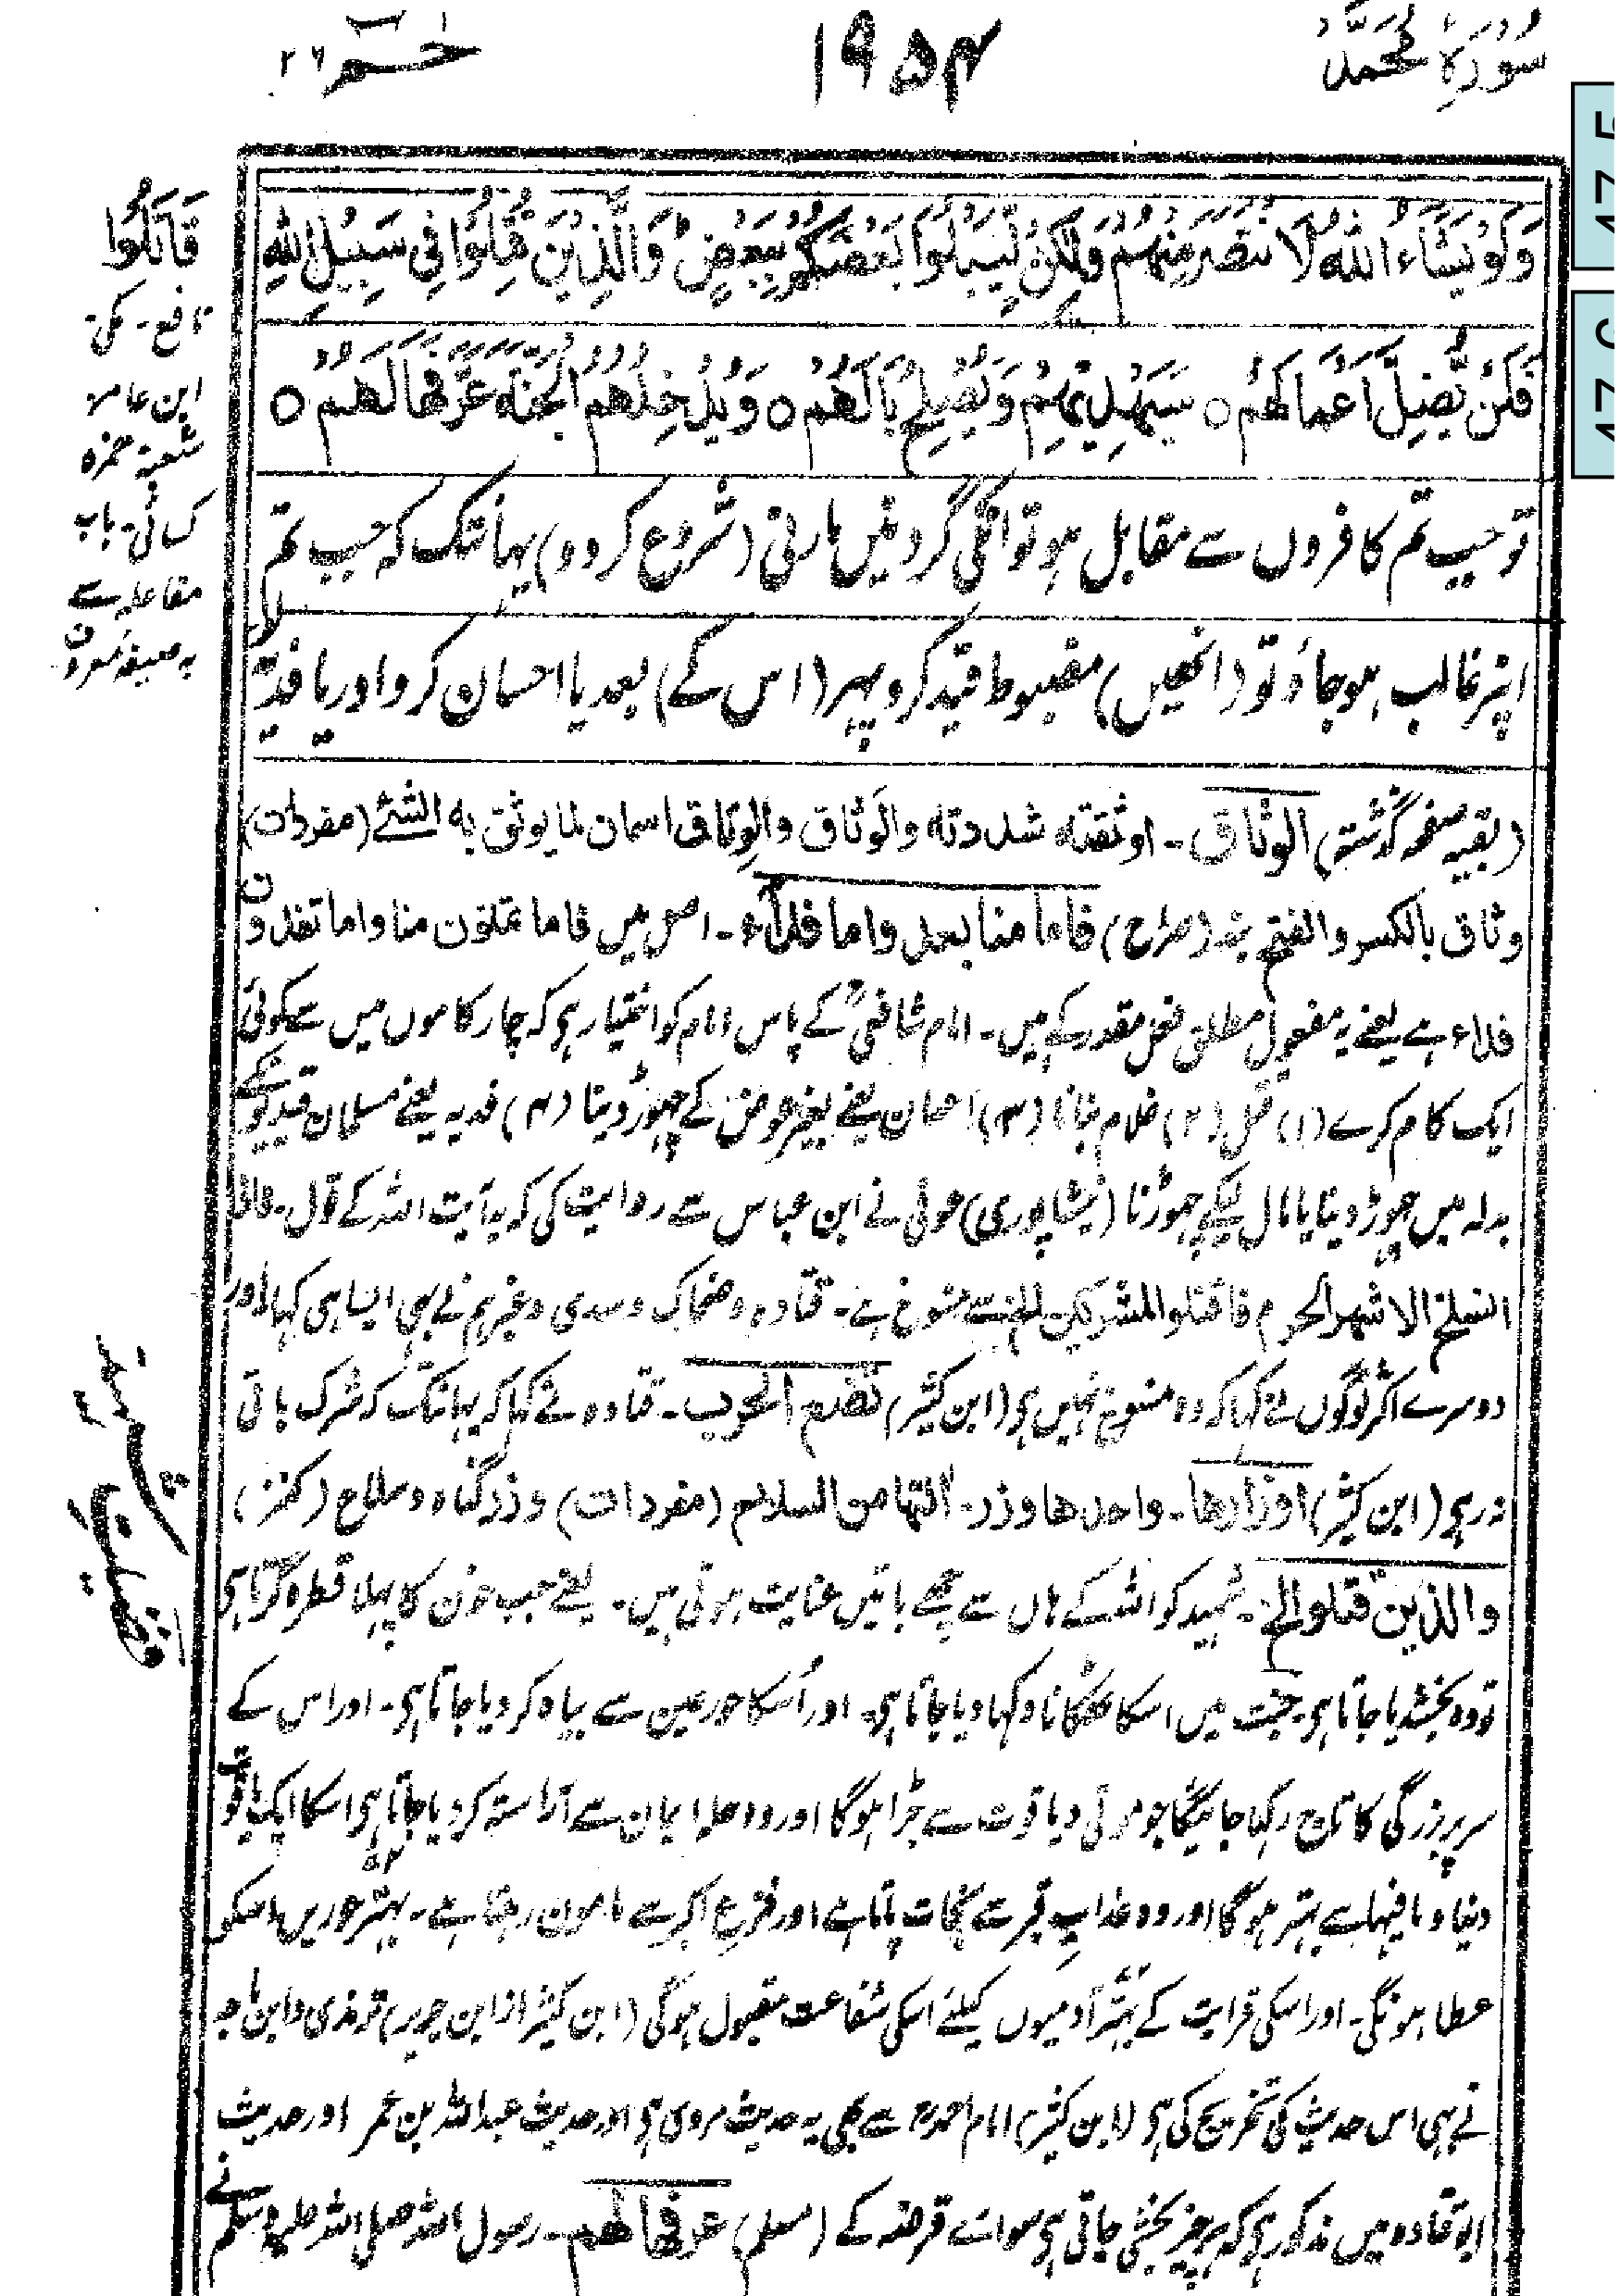 سُوْرَةُ مُحَمَّدٌ
۱۹۵۴
حٰـمٓ ۲۶
47 5
47 6
وَلَوْ يَشَآءُ اللهُ لَانْتَصَرَ مِنْهُمْ وَلٰكِنْ لِّيَبْلُوَا۟ بَعْضَكُمْ بِبَعْضٍ ؕ وَالَّذِيْنَ قُتِلُوْا فِيْ سَبِيْلِ اللهِ
فَلَنْ يُّضِلَّ اَعْمَالَهُمْ ○ سَيَهْدِيْهِمْ وَيُصْلِحُ بَالَهُمْ ○ وَيُدْخِلُهُمُ الْجَنَّةَ عَرَّفَهَا لَهُمْ ○
تو جب تم کافروں سے مقابل ہو تو انکی گردنیں مارنی (شروع کردو) یہانتک کہ جب تم
انپر غالب ہوجاؤ تو (انھیں) مضبوط قید کرو پہر (اس کے) بعد یا احسان کرو اور یا فدیہ لو
(بقیہ صفحہ گزشتہ) الوثاق - اوثقته شددته والوَثاق والوِثاق اسمان لما يوثق به الشئ (مفردات)
وثاق بالکسر والفتح بند (صراح) فاما منا بعد واما فداء - اصل میں فاما تمنون منا واما تفدون
فداء ہے یعنے یہ مفعول مطلق فعل مقدر کے ہیں - امام شافعیؒ کے پاس امام کو اختیار ہی کہ چار کاموں میں سے کوئی
ایک کام کرے (۱) قتل (۲) غلام بنانا (۳) احسان یعنے بغیر عوض کے چھوڑ دینا (۴) فدیہ یعنے مسلمان قیدیونکے
بدلہ میں چھوڑ دینا یا مال لیکے چھوڑنا (نیشاپوری) عوفی نے ابن عباس سے روایت کی کہ یہ آیت اللہ کے قول - فاذا
انسلخ الاشہر الحرم فاقتلوا المشرکین الخ سے منسوخ ہے - قتادہ وضحاک وسدی وغیرہم نے بھی ایسا ہی کہا اور
دوسرے اکثر لوگوں نے کہا کہ وہ منسوخ نہیں ہی (ابن کثیر) تضع الحرب - قتادہ نے کہا کہ یہانتک کہ شرک باقی
نہ رہی (ابن کثیر) اوزارها - واحدها وزر - آلتها من السلاح (مفردات) وزر گناہ و سلاح (کنز)
والذین قتلوا الخ - شہید کو اللہ کے ہاں سے چھے باتیں عنایت ہوتی ہیں - یعنے جب خون کا پہلا قطرہ گرتا ہی
تو وہ بخشدیا جاتا ہی - جنت میں اسکا ٹھکانا دکھا دیا جاتا ہی - اور اُسکا حور عین سے بیاہ کر دیا جاتا ہی - اور اس کے
سر پر بزرگی کا تاج رکھا جائیگا جو موتی و یاقوت سے جڑا ہوگا اور وہ حلہ ایمان سے آراستہ کر دیا جاتا ہی اسکا ایک یاقوت
دنیا و مافیہا سے بہتر ہوگا اور وہ عذاب قبر سے نجات پاتا ہے اور فزع اکبر سے مامون رہتا ہے - بہتر ۷۲ حوریں اسکو
عطا ہونگی - اور اسکی قرابت کے بہتر آدمیوں کیلئے اسکی شفاعت مقبول ہوگی (ابن کثیر از ابن جریر) ترمذی و ابن ماجہ
نے بھی اس حدیث کی تخریج کی ہی (ابن کثیر) امام احمدؒ سے بھی یہ حدیث مروی ہی اور حدیث عبداللہ بن عمر اور حدیث
ابوقتادہ میں مذکور ہی کہ ہر چیز بخشی جاتی ہی سوائے قرضہ کے (مسلم) عرفها لهم - رسول اللہ صلی اللہ علیہ وسلم نے
قَاتَلُوْا
نافع - مکی -
ابن عامر
شعبہ - حمزہ
کسائی - باب
مفاعلہ سے
بہ صیغہ معروف